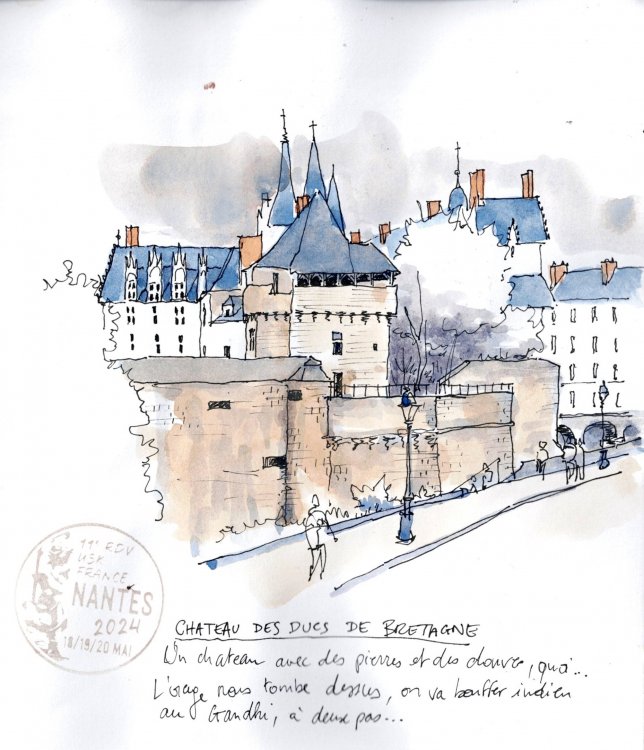 11e RDV
USK
FRANCE
NANTES
2024
18/19/20 MAI
CHATEAU DES DUCS DE BRETAGNE
Un chateau avec des pierres et des douves, quoi...
L'orage nous tombe dessus, on va bouffer indien
au Gandhi, à deux pas...